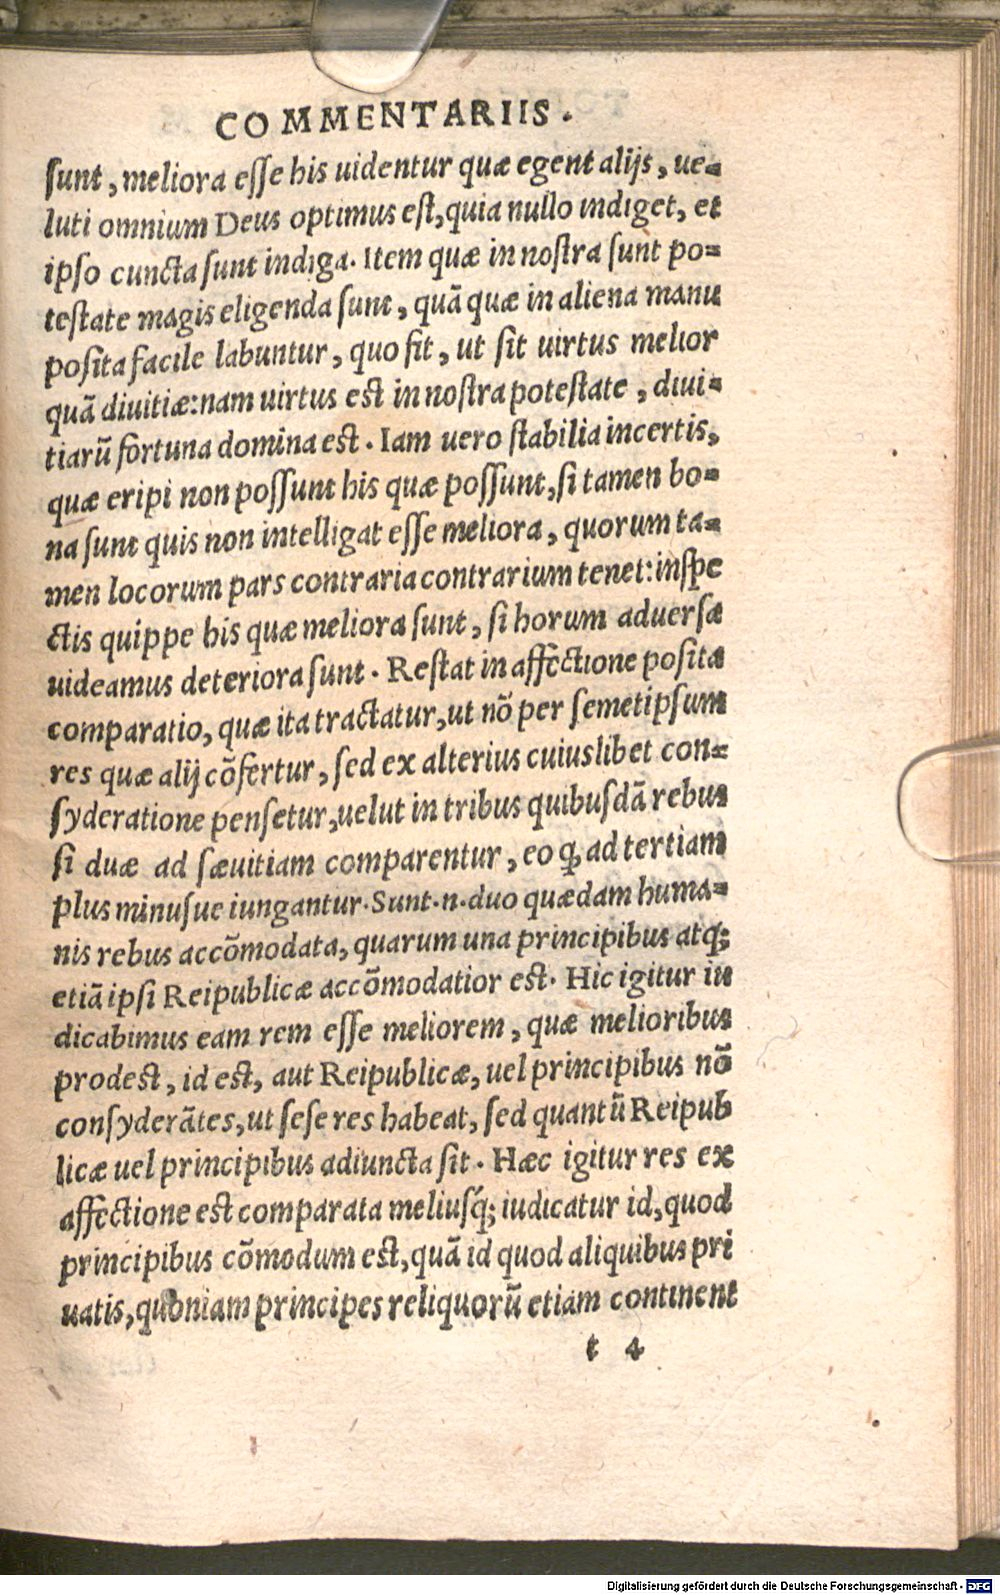 COMMENTARIIS.
sunt, meliora esse his uidentur quæ egent alijs, ue-
luti omnium Deus optimus est, quia nullo indiget, et
ipso cuncta sunt indiga. Item quæ in nostra sunt po-
testate magis eligenda sunt, quā quæ in aliena manu
posita facile labuntur, quo fit, ut sit uirtus melior
quā diuitiæ: nam uirtus est in nostra potestate, diui-
tiarū fortuna domina est. Iam uero stabilia incertis,
quæ eripi non possunt his quæ possunt, si tamen bo-
na sunt quis non intelligat esse meliora, quorum ta-
men locorum pars contraria contrarium tenet: inspe
ctis quippe his quæ meliora sunt, si horum aduersæ
uideamus deteriora sunt. Restat in affectione posita
comparatio, quæ ita tractatur, ut nō per semetipsum
res quæ alij cōfertur, sed ex alterius cuiuslibet con-
syderatione pensetur, uelut in tribus quibusdā rebus
si duæ ad sæuitiam comparentur, eo ꝙ ad tertiam
plus minusue iungantur. Sunt .n. duo quædam huma-
nis rebus accōmodata, quarum una principibus atq;
etiā ipsi Reipublicæ accōmodatior est. Hic igitur iu
dicabimus eam rem esse meliorem, quæ melioribus
prodest, id est, aut Reipublicæ, uel principibus nō
consyderātes, ut sese res habeat, sed quantū Reipub
licæ uel principibus adiuncta sit. Hæc igitur res ex
affectione est comparata meliusq́; iudicatur id, quod
principibus cōmodum est, quā id quod aliquibus pri
uatis, quoniam principes reliquorū etiam continent
t 4
Digitalisierung gefördert durch die Deutsche Forschungsgemeinschaft - DFG